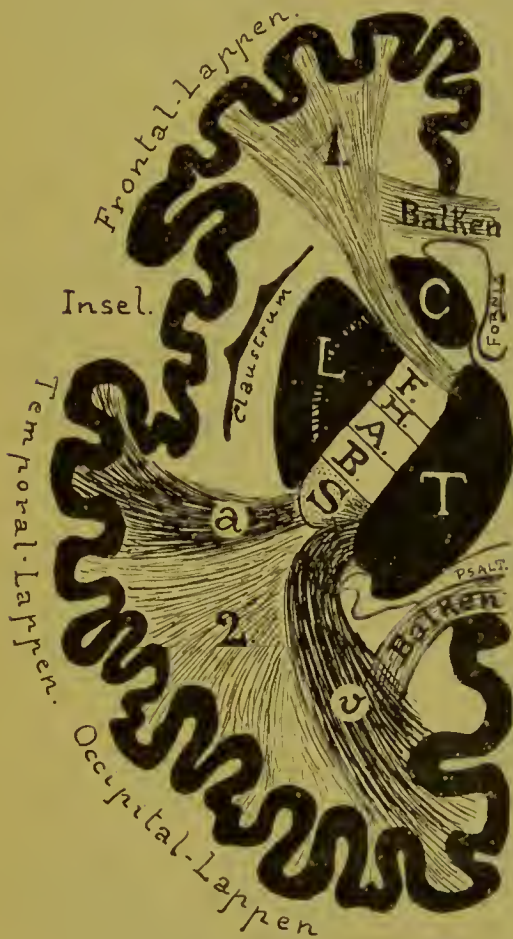 Frontal-Lappen.
1
Balken
FORNIX
C
Insel.
Claustrum
L
F.
H.
A.
B
S
T
Temporal-Lappen.
a
PSALT.
Balken
2.
v
Occipital-Lappen